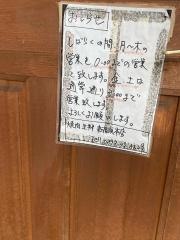 おしらせ
しばらくの間、月〜木の
営業を 0:00までの営業
と致します。金・土は
通常通り :00まで
営業致します
よろしくお願いします。